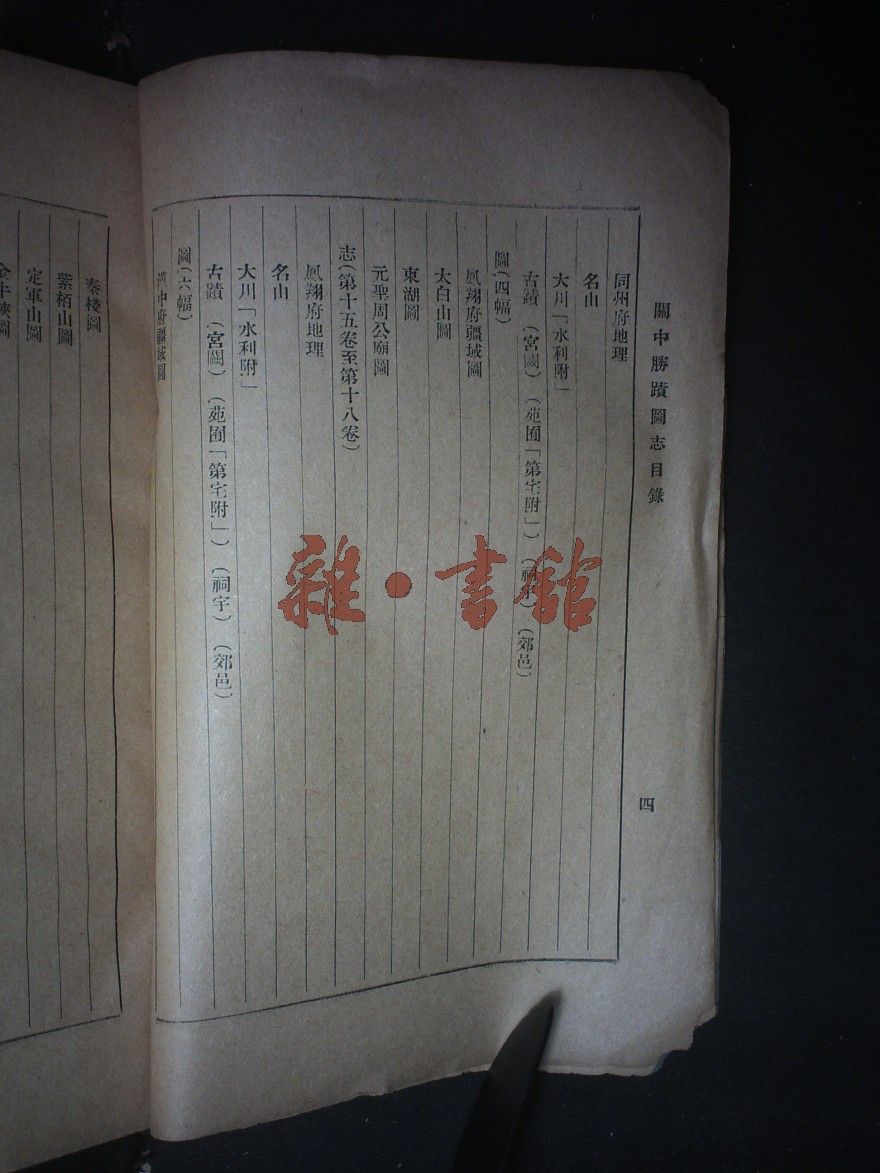 關中勝蹟圖志目錄
四
同州府地理
名山
大川「水利附」
古蹟 （宮闕） （苑囿「第宅附」） （祠宇） （郊邑）
圖（四幅）
鳳翔府疆域圖
太白山圖
東湖圖
元聖周公廟圖
志（第十五卷至第十八卷）
鳳翔府地理
名山
大川「水利附」
古蹟 （宮闕） （苑囿「第宅附」） （祠宇） （郊邑）
圖（六幅）
漢中府疆域圖
秦棧圖
紫栢山圖
定軍山圖
金牛峽圖
雜·書館